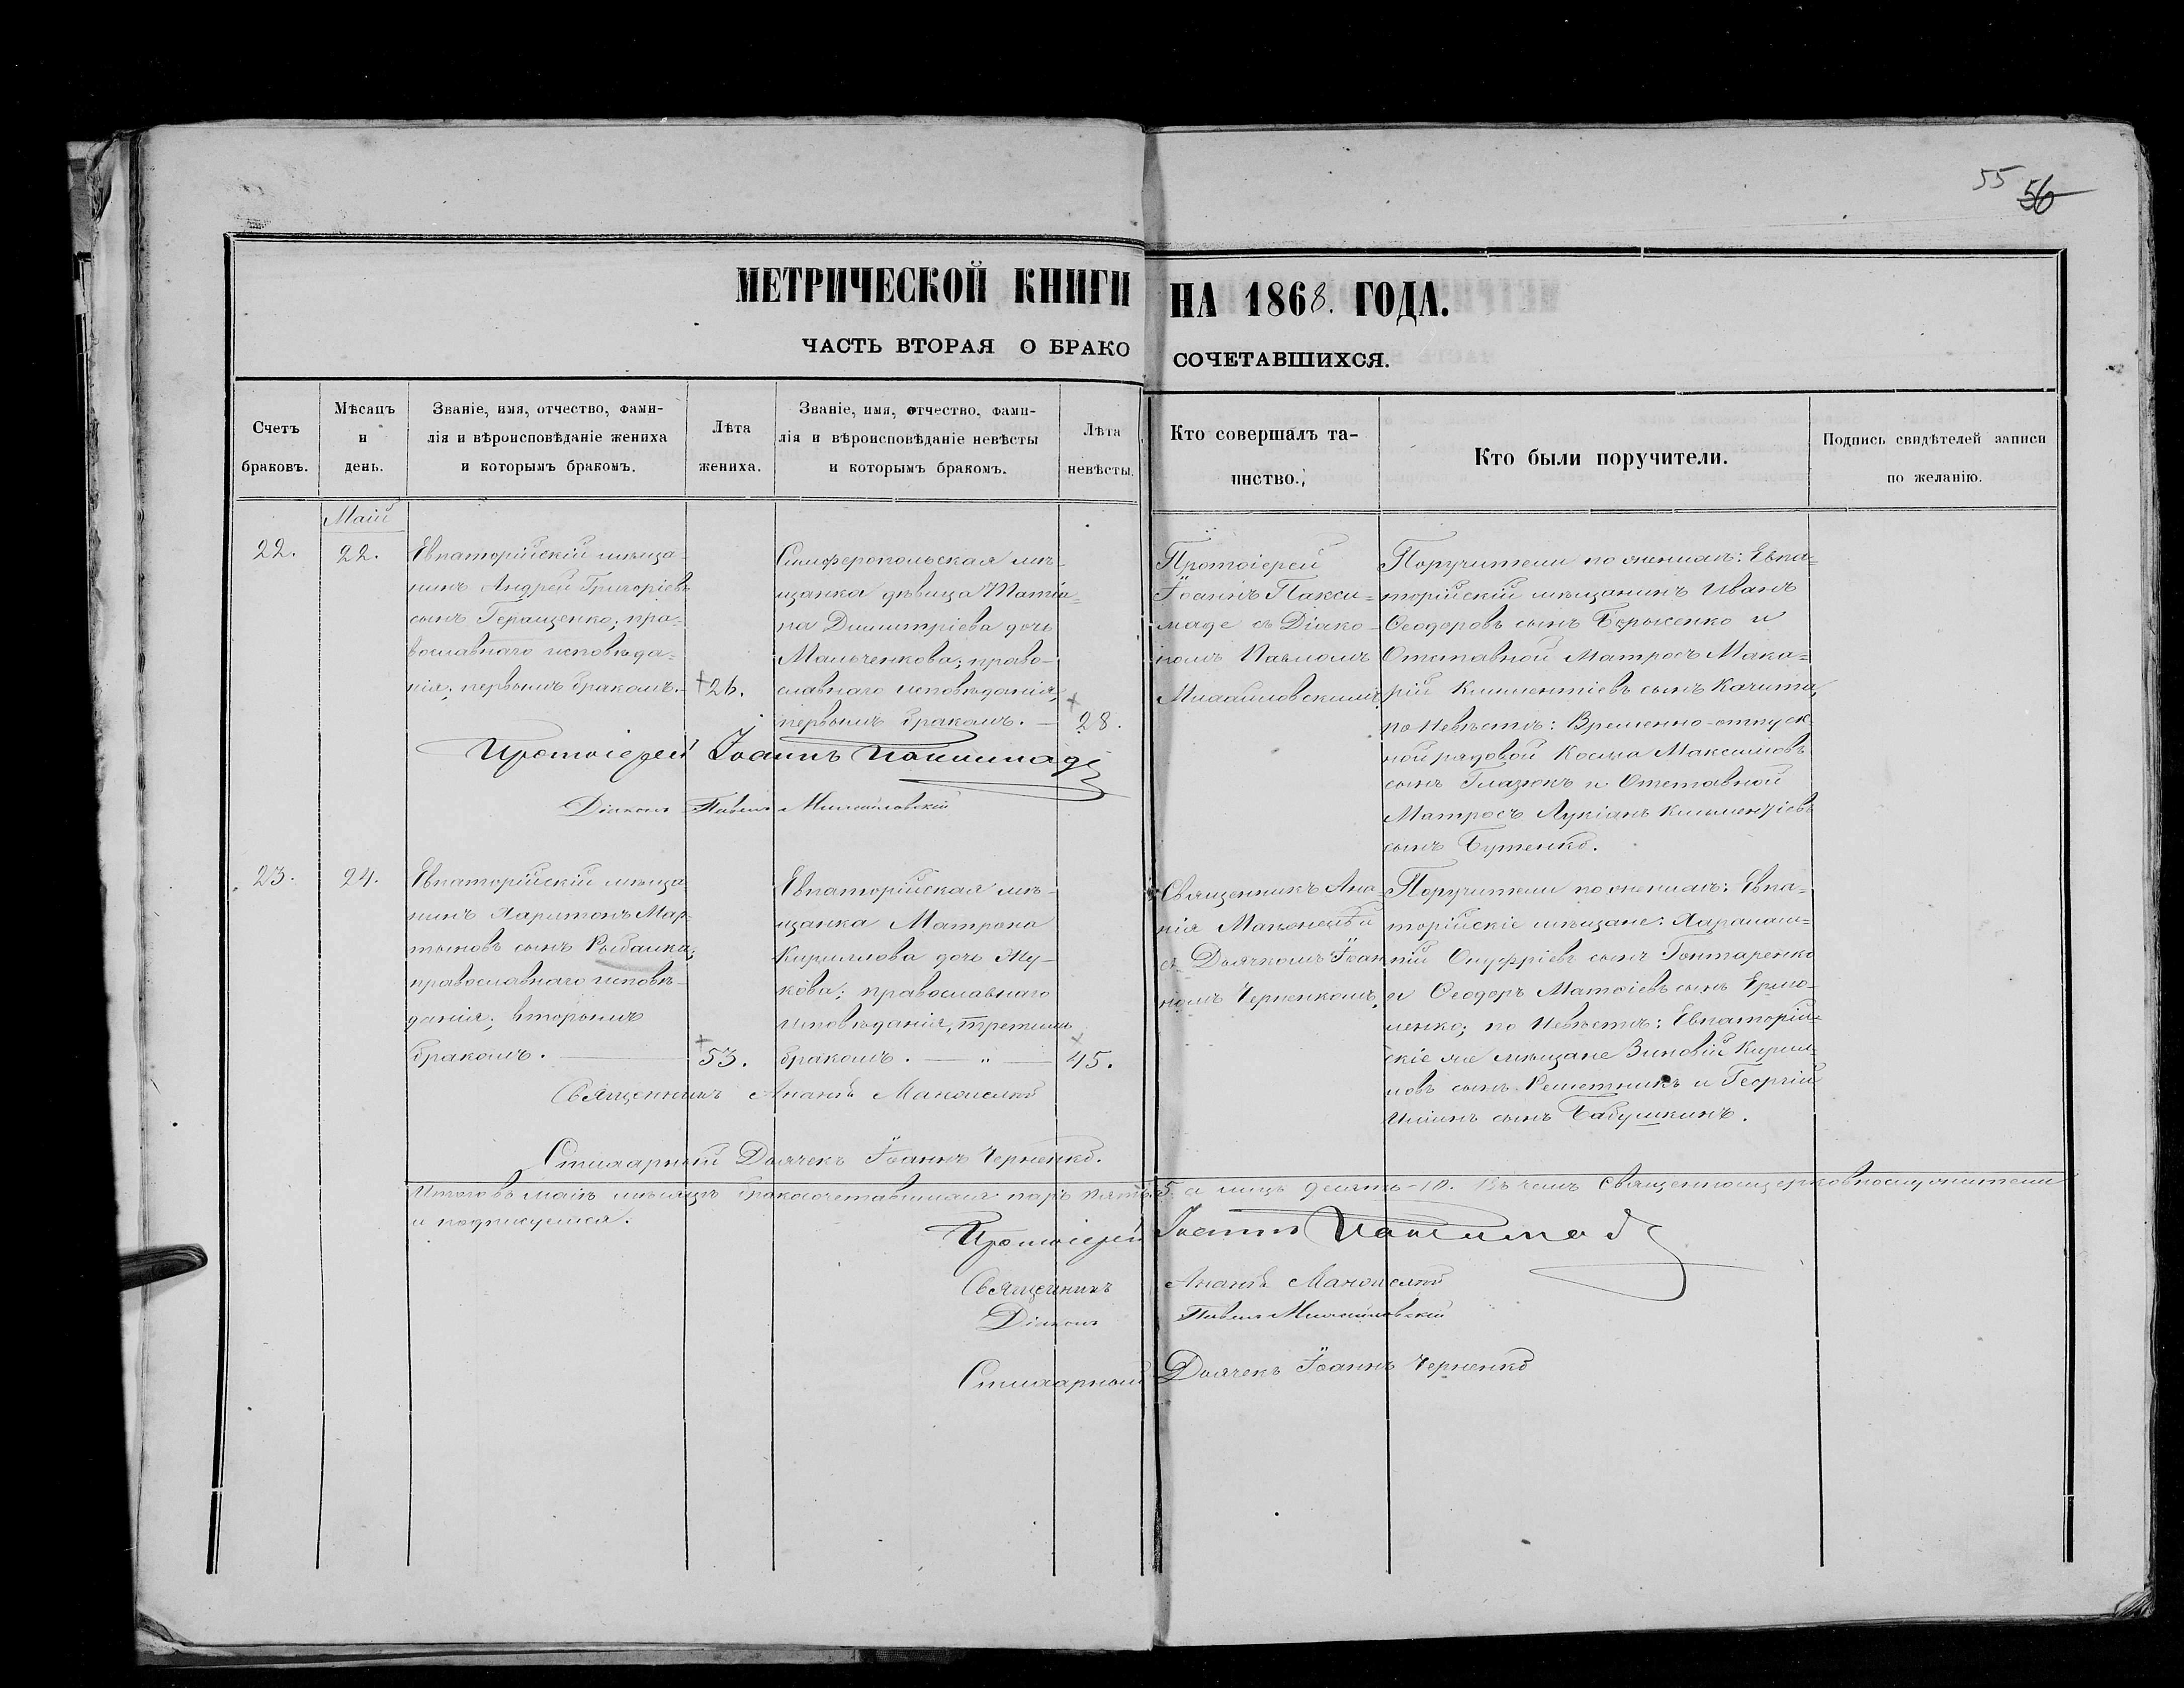 55 56
МЕТРИЧЕСКОЙ КНИГИ НА 1868. ГОДА.
ЧАСТЬ ВТОРАЯ О БРАКОСОЧЕТАВШИХСЯ.
Счетъ
браковъ.
Мѣсяцъ
и
день.
Званіе, имя, отчество, фами-
лія и вѣроисповѣданіе жениха
и которымъ бракомъ.
Лѣта
жениха.
Званіе, имя, отчество, фами-
лія и вѣроисповѣданіе невѣсты
и которымъ бракомъ.
Лѣта
невѣсты.
Кто совершалъ та-
инство.
Кто были поручители.
Подпись свидѣтелей записи
по желанію.
Маій
22.
22.
Евпаторійскій мѣща-
нинъ Андрей Григоріевъ
сынъ Геращенко; пра-
вославнаго исповѣда-
нія; первымъ бракомъ.
26.
Симферопольская мѣ-
щанка дѣвица Татіа-
на Димитріева дочь
Мальченкова; право-
славнаго исповѣданія,
первымъ бракомъ. —
28.
Протоіерей
Іоаннъ Пакси-
маде съ Діако-
номъ Павломъ
Михайловскимъ
Поручители по женихѣ: Евпа-
торійскій мѣщанинъ Иванъ
Ѳеодоровъ сынъ и
Отставной Матросъ Мака-
рій Климентіевъ сынъ Качита,
по Невѣстѣ: Временно-отпуск-
ной рядовой Косма Максимовъ
сынъ Глазюкъ и Отставной
Матросъ Лукіанъ Климентіевъ
сынъ Бутенко.
Протоіерей Іоаннъ Паксимаде
Діаконъ Павелъ Михайловскій
23.
24.
Евпаторійскій мѣща-
нинъ Харитонъ Мар-
тыновъ сынъ Рыбалка;
православнаго исповѣ-
данія; вторымъ
бракомъ.
53.
Евпаторійская мѣ-
щанка Матрона
Кириллова дочь Жу-
кова; православнаго
исповѣданія, третьимъ
бракомъ. — „ —
45.
Священникъ Ана-
нія
съ Дьячкомъ Іоан-
номъ Черненкомъ,
Поручители по женихѣ: Евпа-
торійскіе мѣщане: Харалам-
пій Онуфріевъ сынъ Гонтаренко
и Ѳеодоръ Матѳіевъ сынъ Ермо-
ленко; по Невѣстѣ: Евпаторій-
скіе же мѣщане Зиновій Кирил-
ловъ сынъ Решетникъ и Георгій
Ильинъ сынъ Бабушкинъ.
Священникъ Ананій
Стихарный Дьячекъ Іоаннъ Черненко.
Итого въ Маіѣ мѣсяцѣ бракосочетавшихся паръ пять 5. а лицъ десять-10. Въ чемъ Священноцерковнослужители
и подписуемся.
Протоіерей Іоаннъ Паксимаде
Священникъ Ананій
Діаконъ Павелъ Михайловскій
Стихарный Дьячекъ Іоаннъ Черненко